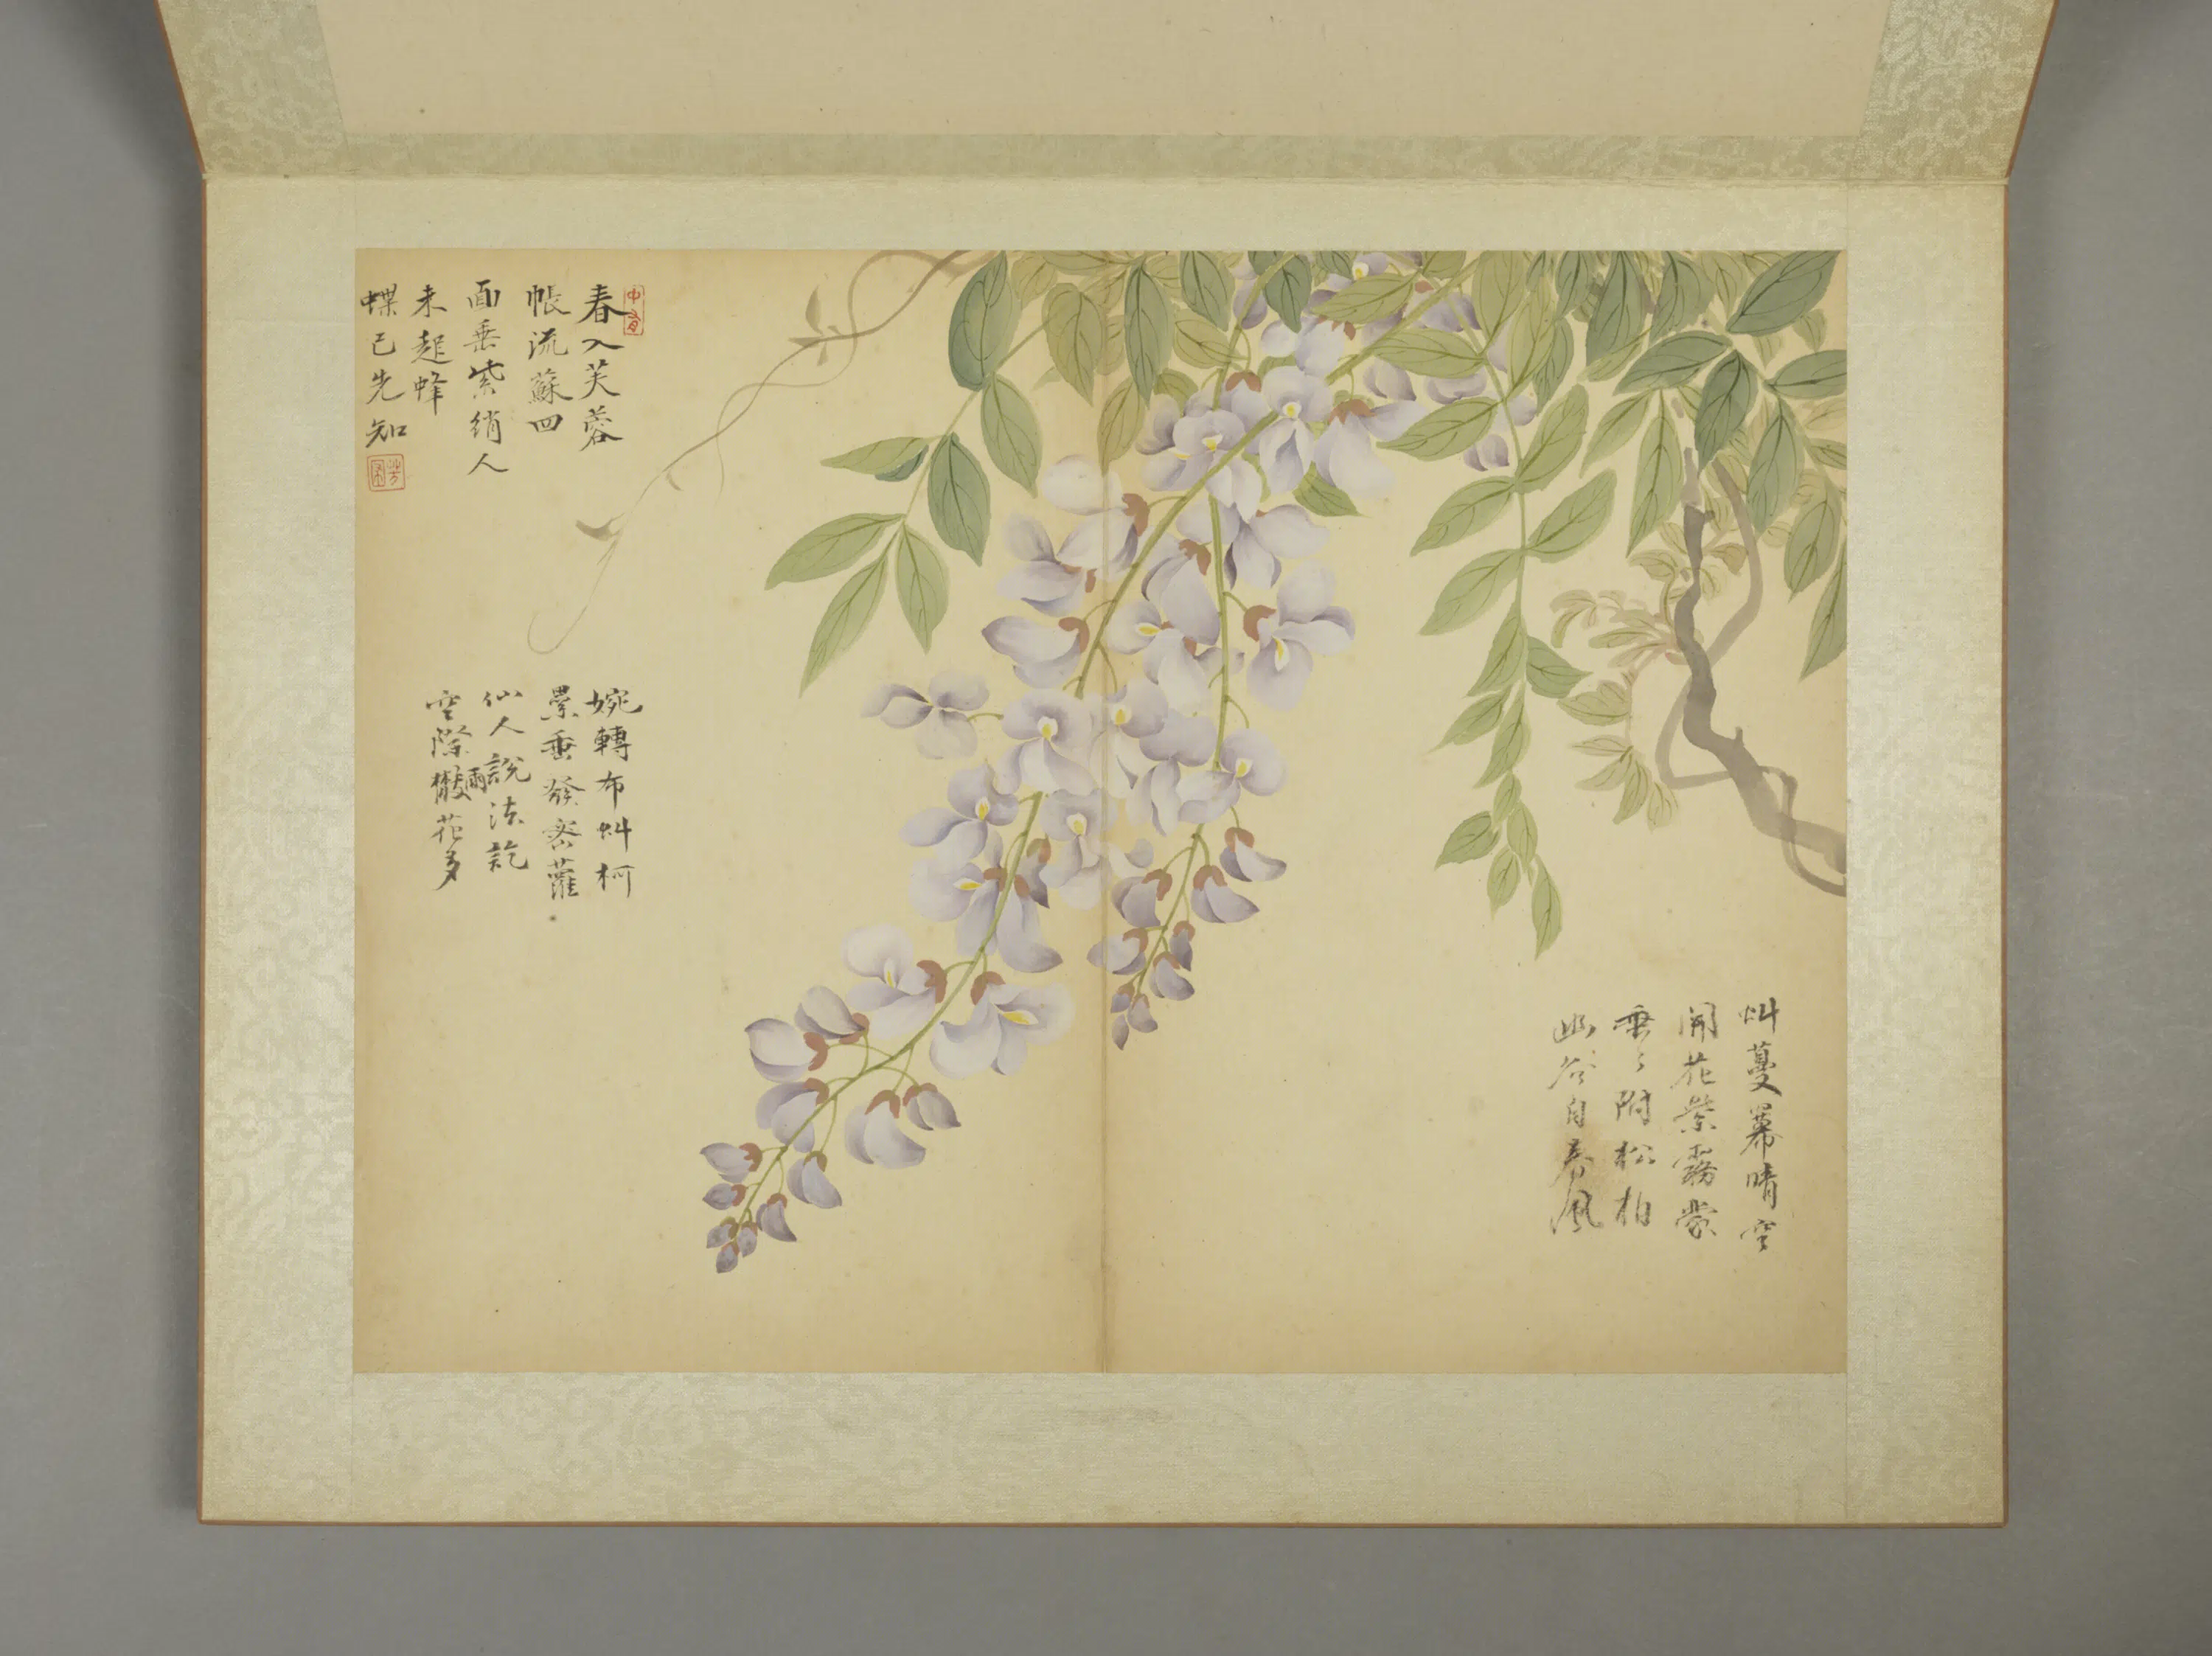 虯蔓羃晴空
開花紫霧蒙
垂々附松柏
幽谷自春風
春入芙蓉
帳流蘇四
面垂紫綃人
未起蜂
蝶已先知
婉轉布虯柯
累垂發密蘿
仙人說法訖
空際雨花多